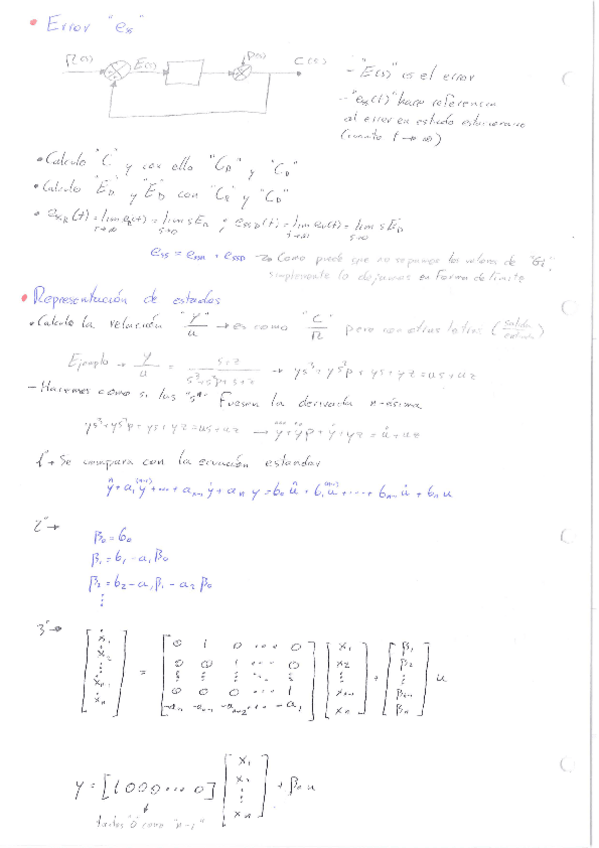 • Error "ess"
R(s) E(s) P(s) C(s)
- "E(s)" es el error
- "ess(t)" hace referencia
al error en estado estacionario
(cuando t → ∞)
• Calculo "C" y con ello "C_R" y "C_D"
• Calculo "E_R" y "E_D" con "C_R" y "C_D"
• e_ssR(t) = lim_{t→∞} e_R(t) = lim_{s→0} s E_R ; e_ssD(t) = lim_{t→∞} e_D(t) = lim_{s→0} s E_D
e_ss = e_ssR + e_ssD → Como puede que no sepamos los valores de "G",
simplemente lo dejamos en forma de límite
• Representación de estados
• Calculo la relación "Y/u" → es como "C/R" pero con otras letras (salida/entrada)
Ejemplo → y/u = (s+z)/(s³+s²p+s+z) → ys³+ys²p+ys+yz=us+uz
- Hacemos como si las "sⁿ" fuesen la derivada n-ésima
ys³+ys²p+ys+yz=us+uz → y⃛+ÿp+ẏ+yz=u̇+uz
1º → Se compara con la ecuación estandar
y^(n)+a₁y^(n-1)+...+a_{n-1}ẏ+a_n y=b₀u^(n)+b₁u^(n-1)+...+b_{n-1}u̇+b_n u
2º →
β₀=b₀
β₁=b₁-a₁β₀
β₂=b₂-a₁β₁-a₂β₀
⋮
3º →
[ẋ₁ ẋ₂ ⋮ ẋ_{n-1} ẋ_n] = [0 1 0 ... 0; 0 0 1 ... 0; ⋮ ⋮ ⋮ ⋱ ⋮; 0 0 0 ... 1; -a_n -a_{n-1} -a_{n-2} ... -a₁] [x₁ x₂ ⋮ x_{n-1} x_n] + [β₁ β₂ ⋮ β_{n-1} β_n] u
y = [1 0 0 0 ... 0] [x₁ x₂ ⋮ x_n] + β₀u
tantos "0" como "n-1"